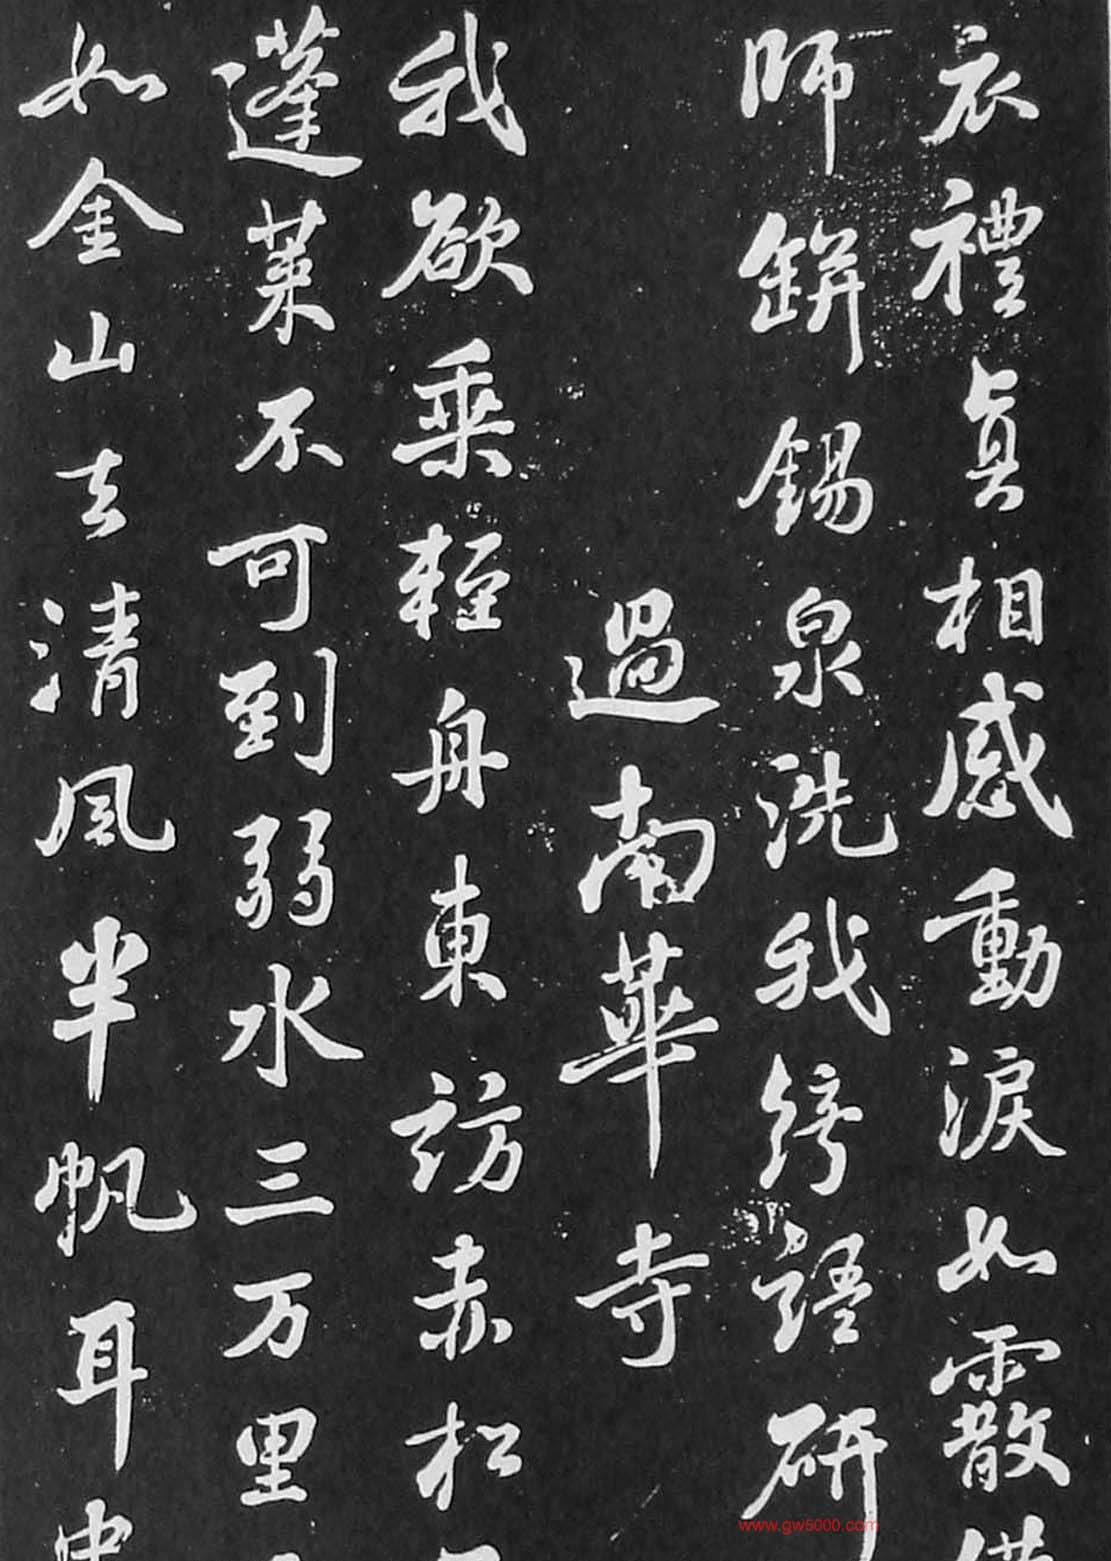 衣禮真相感動淚如霰借
師錍錫泉洗我綺語研
過南華寺
我欲乘輕舟東訪赤松
蓬萊不可到弱水三万里
如金山去清風半帆耳中
www.gw5000.com